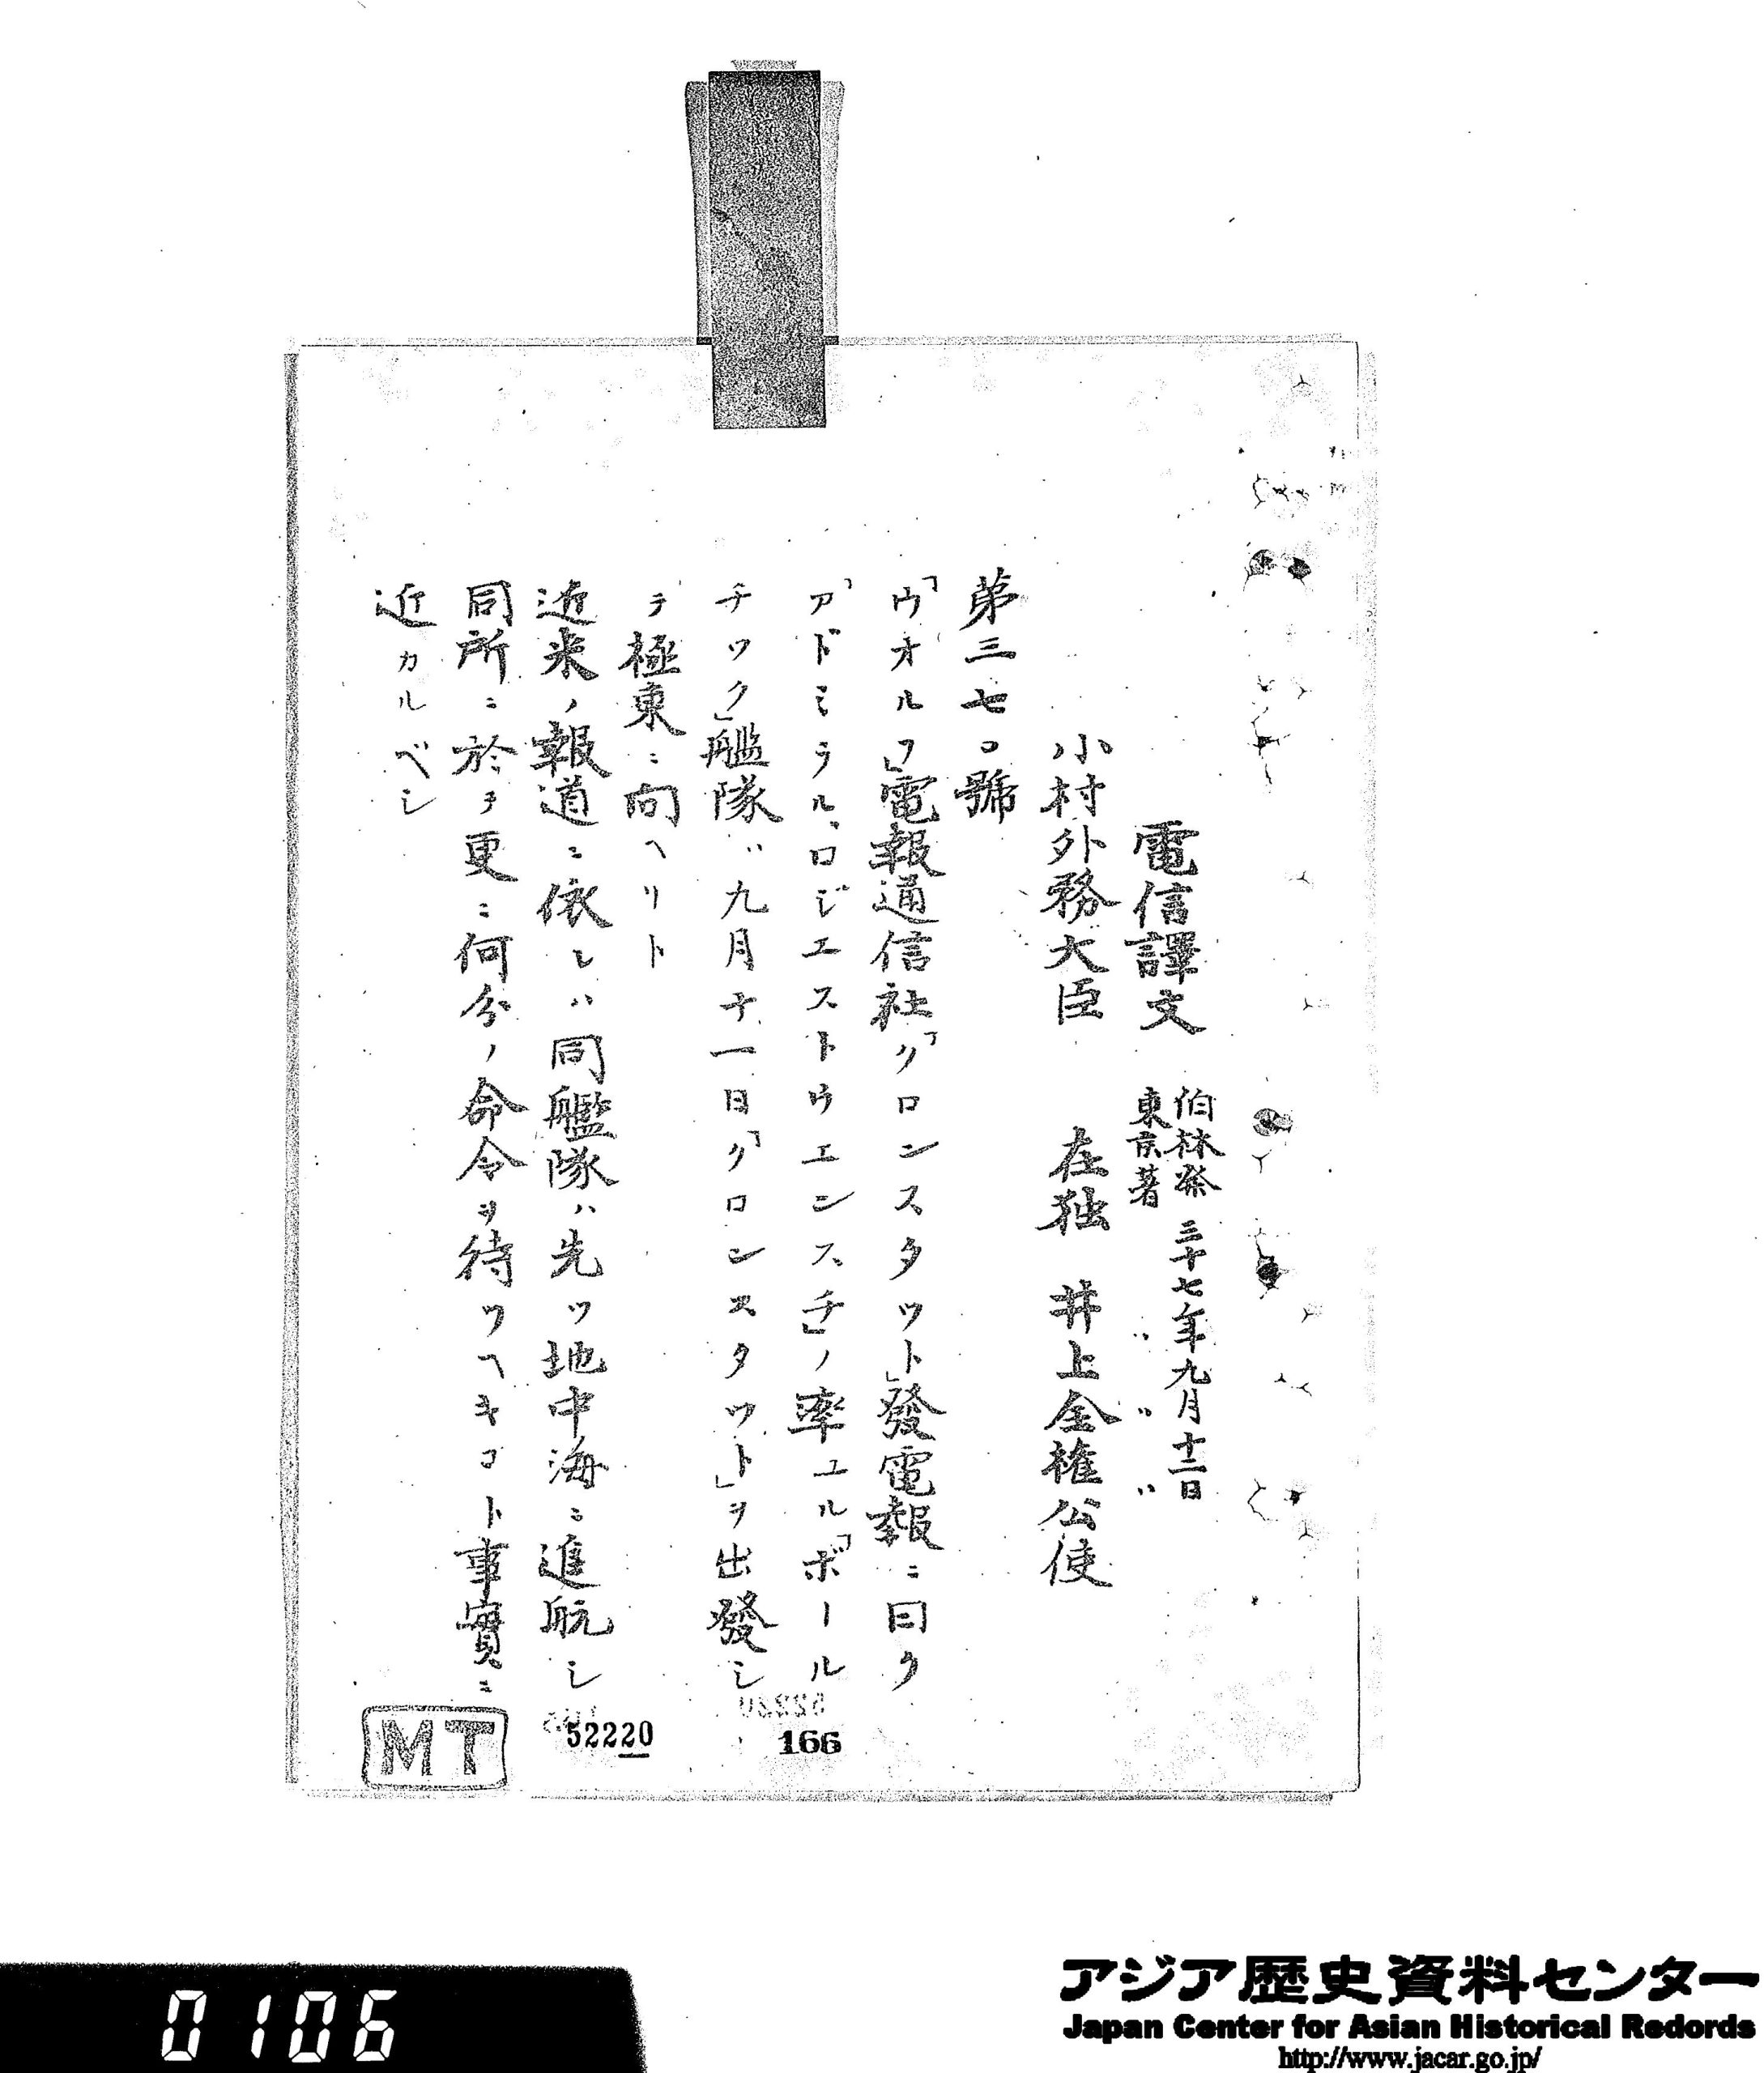 電信譯文
伯林發 三十七年九月十二日
東京著 〃 〃 〃
小村外務大臣 在独 井上全權公使
第三七〇號
「ウオルフ」電報通信社「クロンスタット」發電報ニ曰ク
「アドミラル、ロジエストウエンスチ」ノ率ユル「ボール
チツク」艦隊ハ九月十一日「クロンスタツト」ヲ出發シ
テ極東ニ向ヘリト
近来ノ報道ニ依レハ同艦隊ハ先ツ地中海ニ進航シ
同所ニ於テ更ニ何分ノ命令ヲ待ツヘキコト事實ニ
近カルベシ
MT
52220
166
0106
アジア歴史資料センター
Japan Center for Asian Historical Redords
http://www.jacar.go.jp/